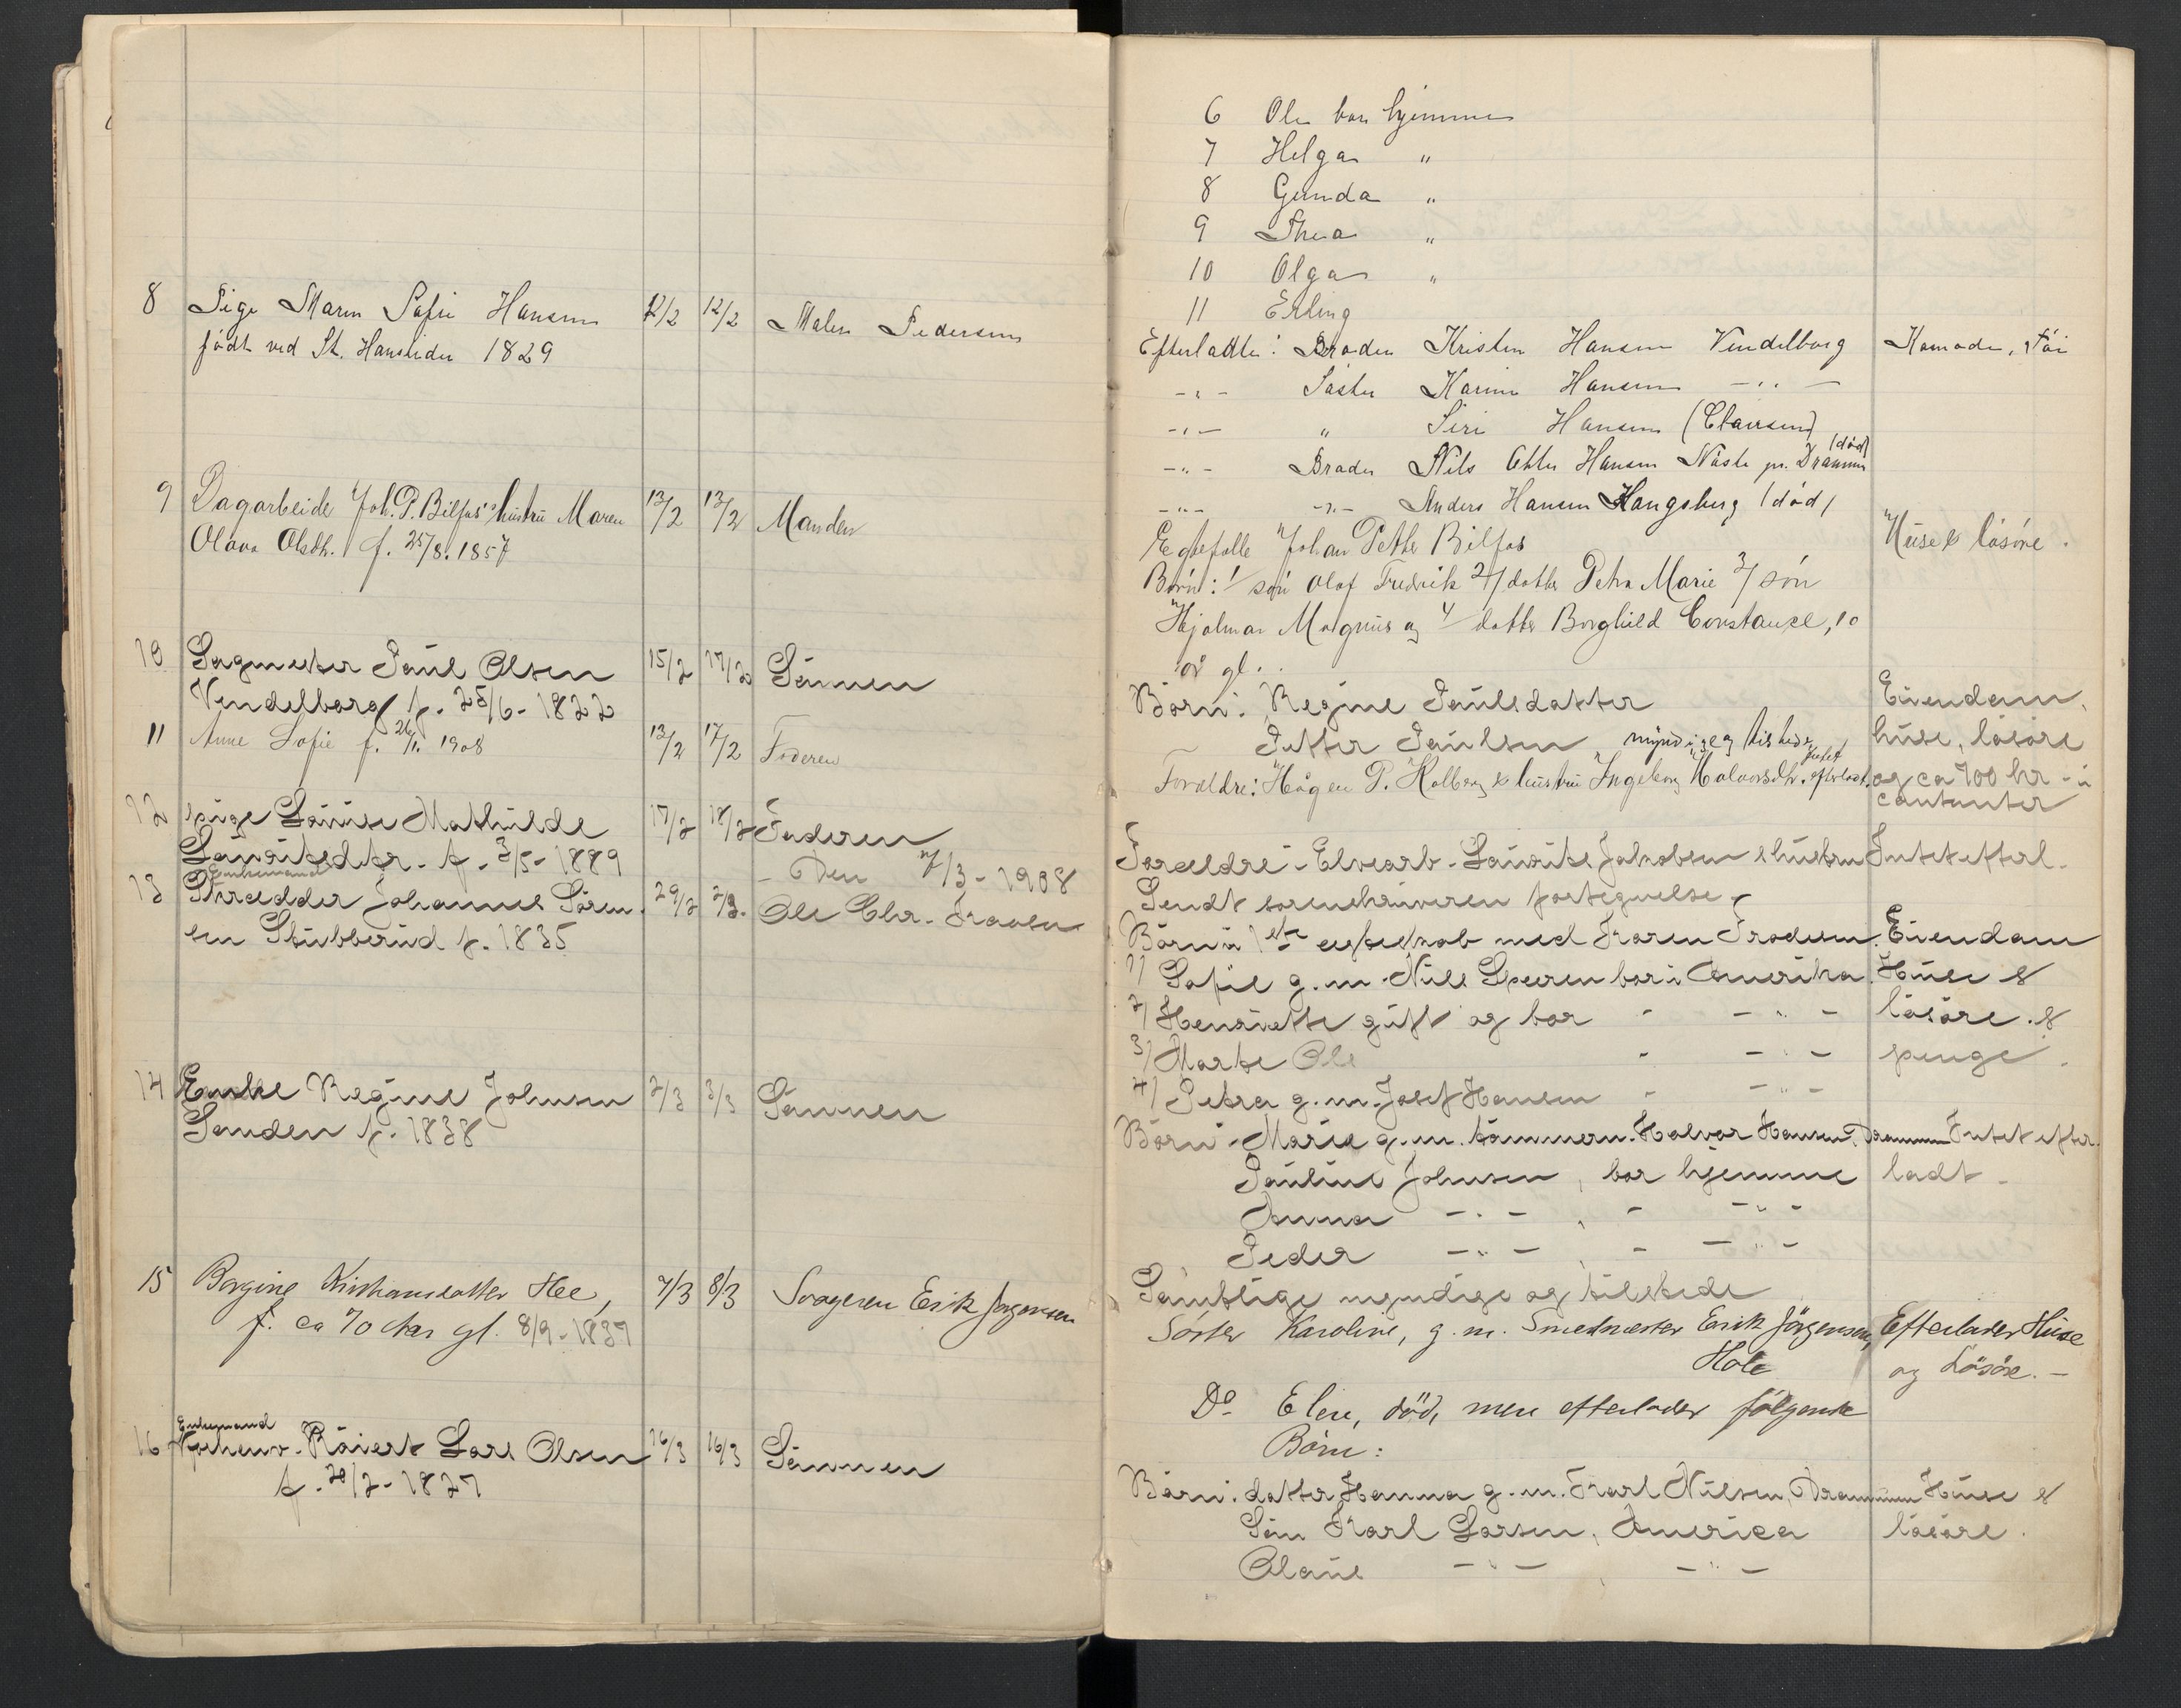 8 Pige Maren Sofie Hansen 12/2 12/2 Malen Pedersen
født ved St. Hanstider 1829
9 Dagarbeide Joh. P. Bilfos' hustru Maren 13/2 13/2 Manden
Olava Olsdtr. f. 25/8. 1857
10 Sagmester Paul Olsen 15/2 17/2 Sønnen
Vendelborg f. 25/6 - 1822
11 Anne Sofie f. 26/11. 1908 13/2 17/2 Faderen
12 pige Lovise Mathilde 17/2 18/2 Faderen
Lauritsdtr. f. 3/5 - 1889
- Den 7/3 - 1908
Enkemand
13 Johannes Sören- 29/2 2/3. Ole Chr. Fransen
sen Stubberud f. 1835
14 Enke Regine Johnsen 2/3 3/3 Sønnen
Sanden f. 1838
15 Borgine Kristiansdatter Hee, 7/3 8/3 Svogeren Erik Jørgensen
f. ca 70 Aar gl. 8/9 - 1837
Enkemand
16 Lars Olsen 16/3 16/3 Sønnen
f. 20/2 - 1827
6 Ole bor hjemme
7 Helga "
8 Gunda "
9 Thea "
10 Olga "
11 Erling
Efterladte: Broder Kristen Hansen Vendelborg Komode, Tøi
-"- Søster Karine Hansen -"-
-"- " Siri Hansen (Clausen)
-"- Broder Nils Otter Hansen Nøste pr. Drammen (død)
-"- -"- Anders Hansen Kongsberg (død)
Egtefelle Johan Petter Bilfos Huse & løsøre.
Børn: 1/ søn Olaf Fredrik 2/ datter Petra Marie 3/ søn
Hjalmar Magnus og 4/ datter Borghild Constance, 10
år gl.
Børn: Regine Paulsdatter Eiendom,
Petter Paulsen, myndige og tilstede huse, løsøre
Forældre: Hågen P. Kolberg & hustru Ingeborg Halvorsdtr. Intet efterladt. og ca 700 kr - i
contanter
Forældre - Elvearb. Laurits Jakobsen & hustru Intet efterl.
Sendt sorenskriveren fortegnelse -
Børn i 1ste egteskab med Karen Eiendom
1) Sofie g. m. Nils bor i Amerika Huse &
2) Henriette gift og bor - -"- løsøre. &
3) Marte Ole - -"- penge.
4) Petra g. m. Josef Hansen - -"-
Børn - Marie g. m. tømmerm. Halvor Hansen, Drammen Intet efter-
Pauline Johnsen, bor hjemme ladt -
Anna -"-, - -"-
Peder -"- - -"-
Samtlige myndige og tilstede
Søster Karoline, g. m. Smedmester Erik Jörgensen, Efterlader Huse
Hole og Løsøre. -
Do Eline, död, men efterlader følgende
Børn:
Børn: datter Hanna g. m. Karl Nilsen, Drammen Huse &
Søn Karl Larsen, America løsøre.
Olaus -"- -"-